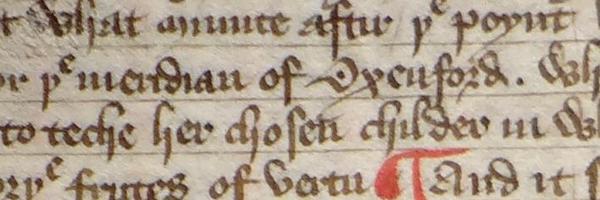 what minute aftur yᵉ poynt
yᵉ meridian of Oxenford.
to teche her chosen childer in
fruites of vertu ¶ And it